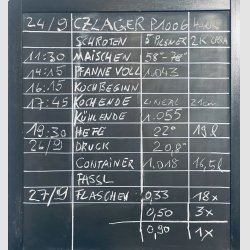 24/9 CZLAGER P1006
SCHROTEN 5 PILSNER 2K
11:30 MAISCHEN 58°-78°
14:15 PFANNE VOLL 1.043
16:15 KOCHBEGINN
17:45 KOCHENDE LINEAL 21cm
KÜHLENDE 1.055
19:30 HEFE 22° 19l
24/9 DRUCK 20,8°
CONTAINER 1.018 16,5l
FASSL
27/9 FLASCHEN 0,33 18x
0,50 3x
0,90 1x